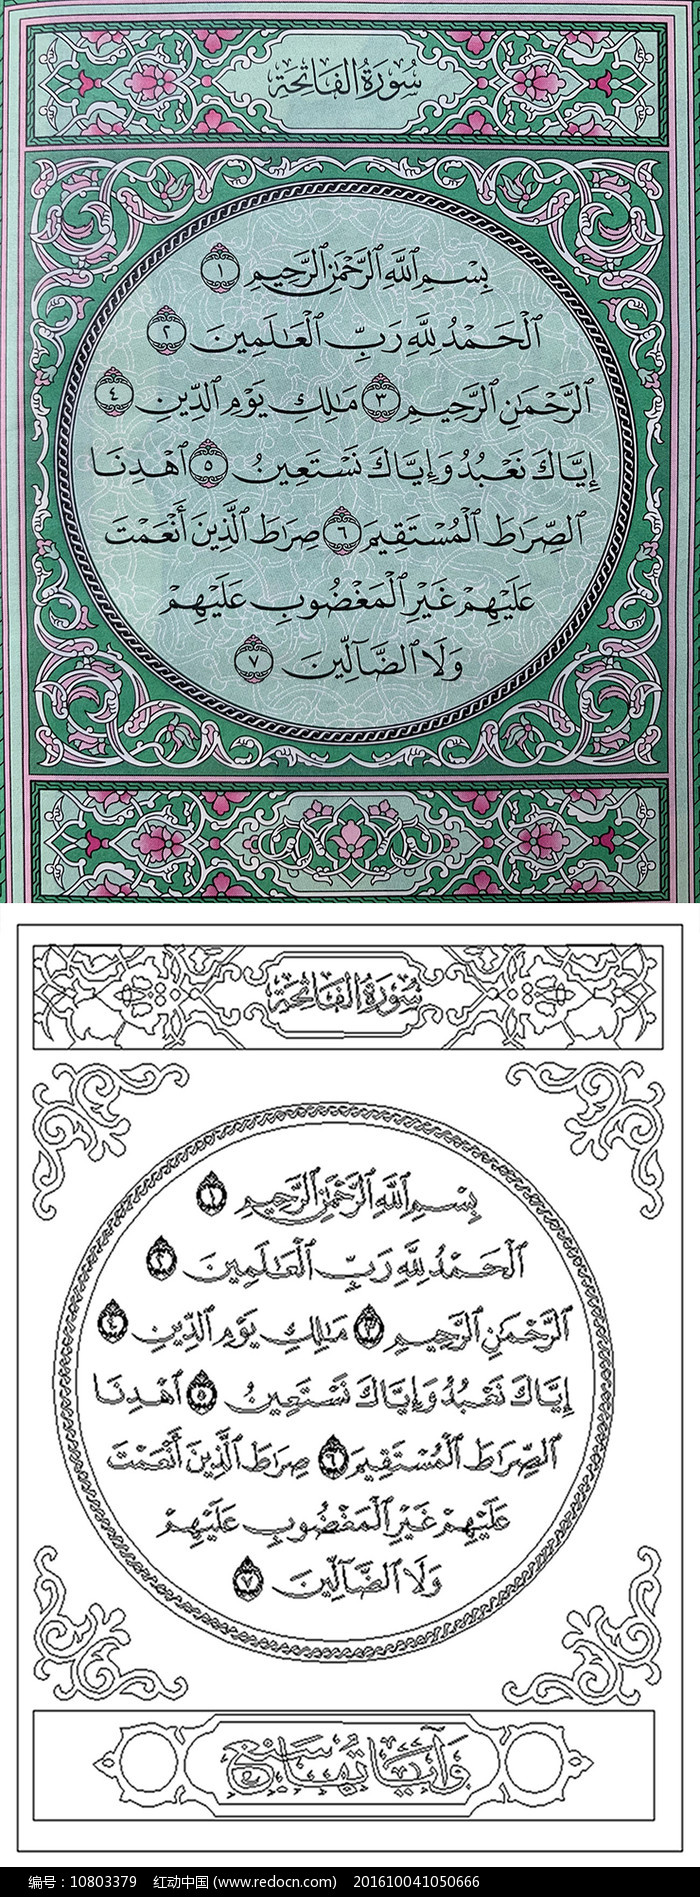 سُورَةُ الْفَاتِحَة
بِسْمِ ٱللَّهِ ٱلرَّحْمَٰنِ ٱلرَّحِيمِ ١
ٱلْحَمْدُ لِلَّهِ رَبِّ ٱلْعَٰلَمِينَ ٢
ٱلرَّحْمَٰنِ ٱلرَّحِيمِ ٣ مَٰلِكِ يَوْمِ ٱلدِّينِ ٤
إِيَّاكَ نَعْبُدُ وَإِيَّاكَ نَسْتَعِينُ ٥ ٱهْدِنَا
ٱلصِّرَٰطَ ٱلْمُسْتَقِيمَ ٦ صِرَٰطَ ٱلَّذِينَ أَنْعَمْتَ
عَلَيْهِمْ غَيْرِ ٱلْمَغْضُوبِ عَلَيْهِمْ
وَلَا ٱلضَّآلِّينَ ٧
سُورَةُ الْفَاتِحَة
بِسْمِ ٱللَّهِ ٱلرَّحْمَٰنِ ٱلرَّحِيمِ ١
ٱلْحَمْدُ لِلَّهِ رَبِّ ٱلْعَٰلَمِينَ ٢
ٱلرَّحْمَٰنِ ٱلرَّحِيمِ ٣ مَٰلِكِ يَوْمِ ٱلدِّينِ ٤
إِيَّاكَ نَعْبُدُ وَإِيَّاكَ نَسْتَعِينُ ٥ ٱهْدِنَا
ٱلصِّرَٰطَ ٱلْمُسْتَقِيمَ ٦ صِرَٰطَ ٱلَّذِينَ أَنْعَمْتَ
عَلَيْهِمْ غَيْرِ ٱلْمَغْضُوبِ عَلَيْهِمْ
وَلَا ٱلضَّآلِّينَ ٧
وَآيَاتُهَا سَبْع
编号：10803379 红动中国 (www.redocn.com) 201610041050666